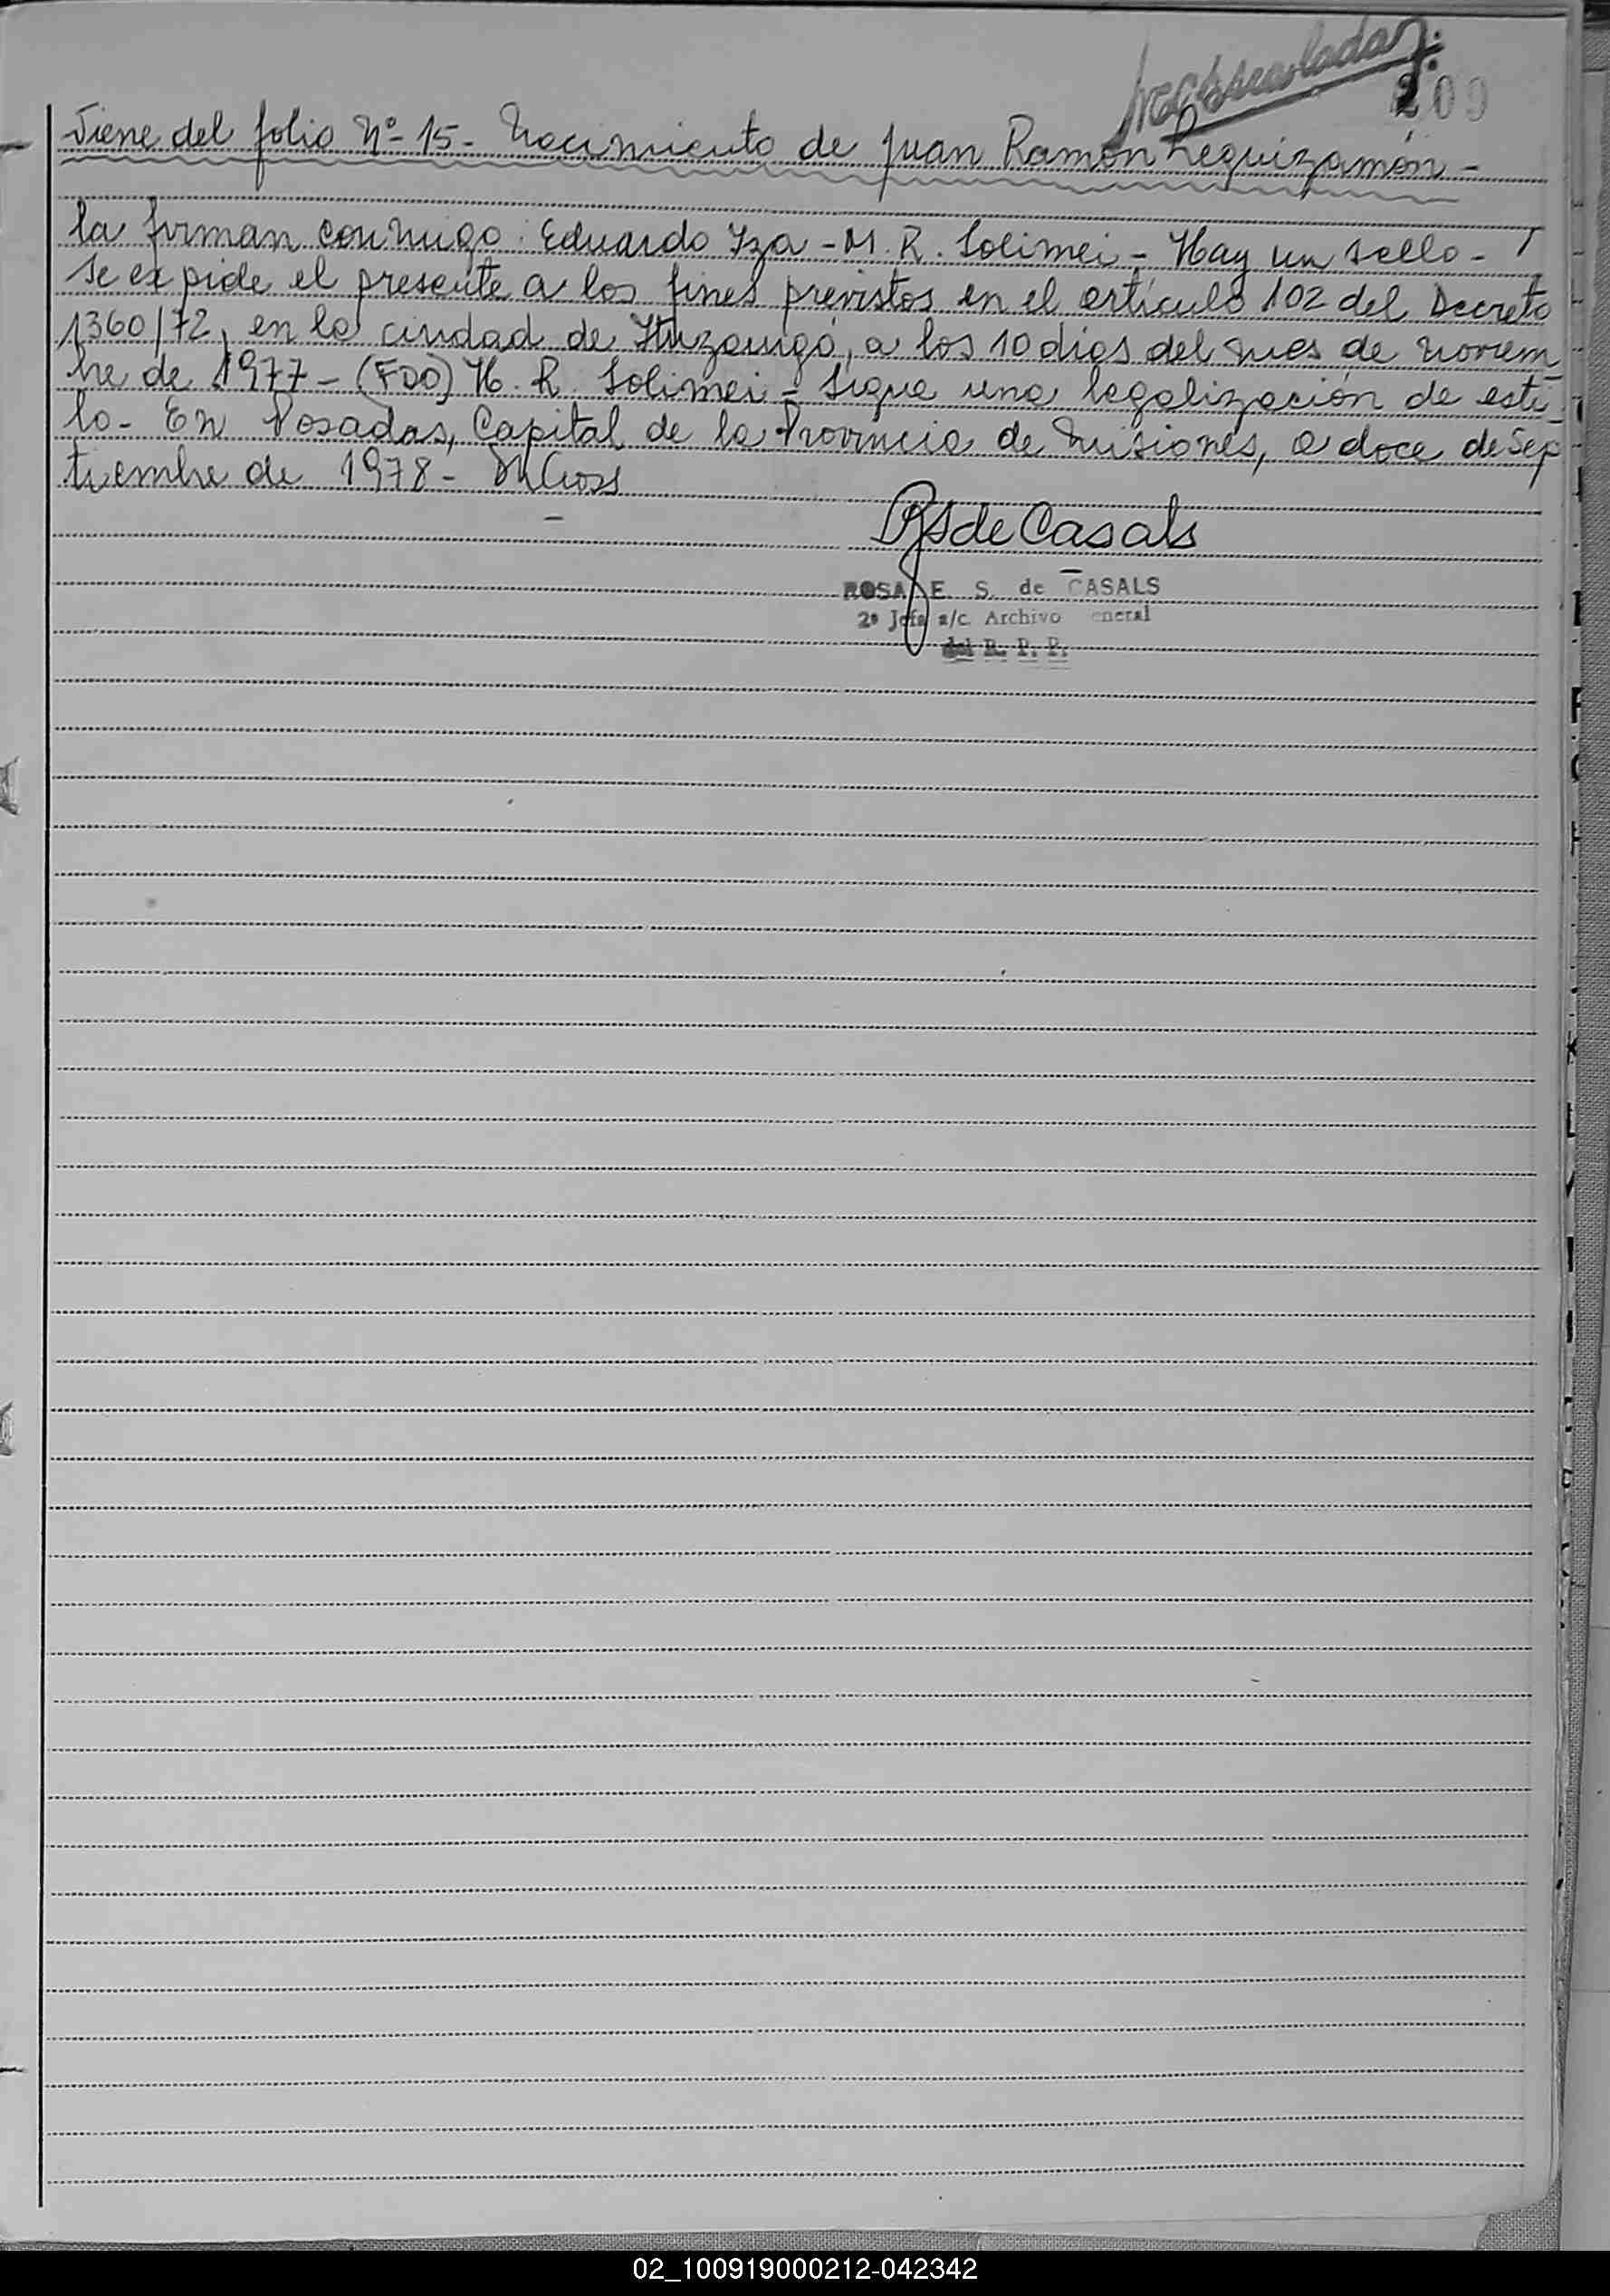 209
Viene del folio Nº- 15- Nacimiento de Juan Ramón Leguizamón -
la firman conmigo: Eduardo Iza - M. R. Solimei - Hay un sello -
Se expide el presente a los fines previstos en el artículo 102 del Decreto
1360/72, en la ciudad de Ituzaingó, a los 10 dias del mes de noviem
bre de 1977 - (FDO) H. R. Solimei - Sigue una legalización de esti
lo - En Posadas, Capital de la Provincia de Misiones, a doce de Sep
tiembre de 1978 -
de Casals
ROSA E. S. de CASALS
2º Jefa a/c. Archivo eneral
del R. P. P.
02_100919000212-042342